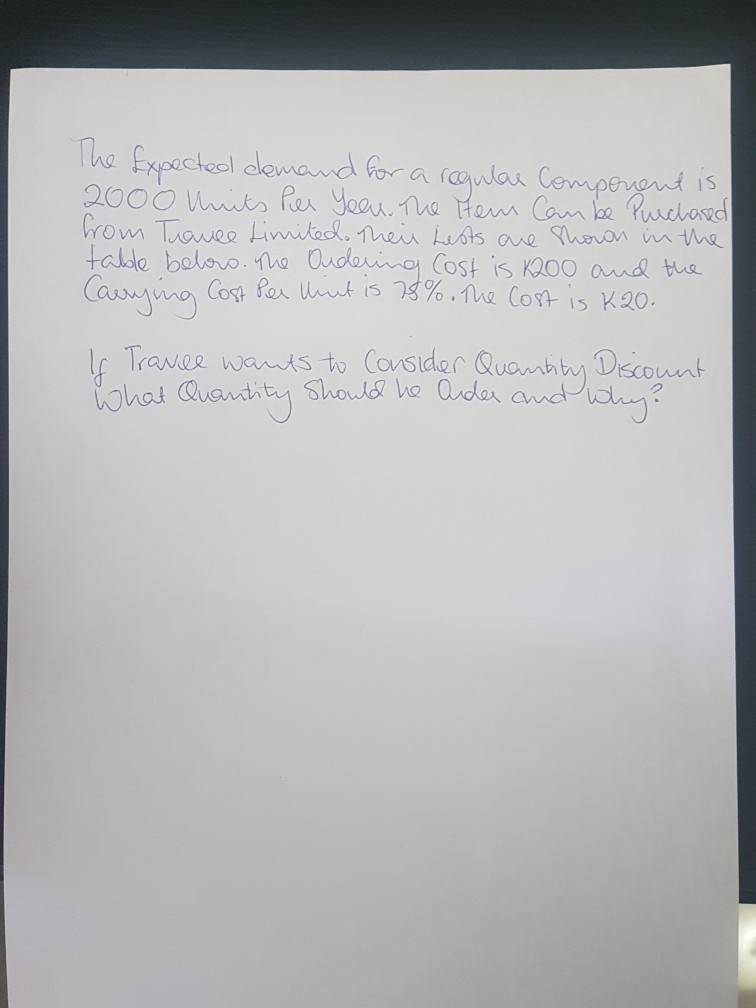 The Expected demand for a regular Component is
2000 Units Per Year. The Item Can be Purchased
from Travee Limited. Their Lists are Shown in the
table below. The Ordering Cost is K200 and the
Carrying Cost Per Unit is 78%. The Cost is K20.
If Travee wants to Consider Quantity Discount
What Quantity Should he Order and Why?